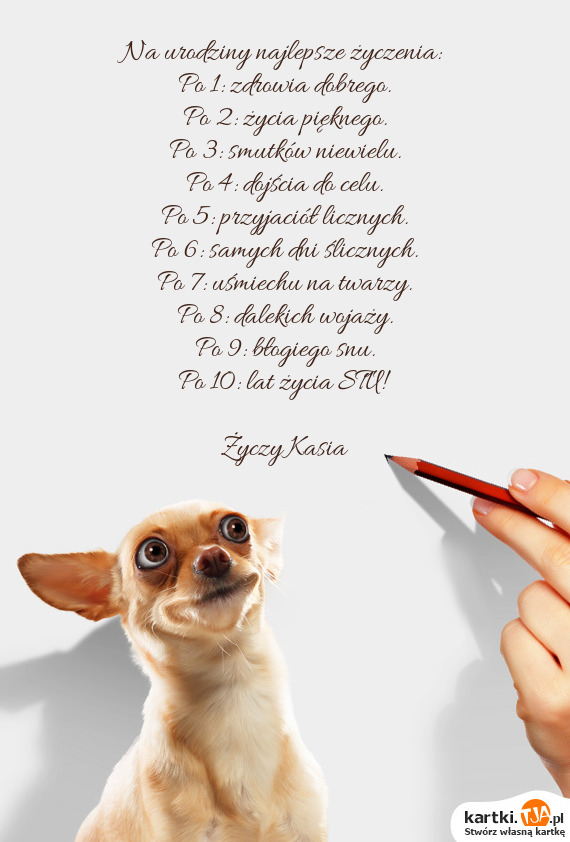 Na urodziny najlepsze życzenia:
Po 1: zdrowia dobrego.
Po 2: życia pięknego.
Po 3: smutków niewielu.
Po 4: dojścia do celu.
Po 5: przyjaciół licznych.
Po 6: samych dni ślicznych.
Po 7: uśmiechu na twarzy.
Po 8: dalekich wojaży.
Po 9: błogiego snu.
Po 10: lat życia STU!
Życzy Kasia
kartki.TJA.pl
Stwórz własną kartkę